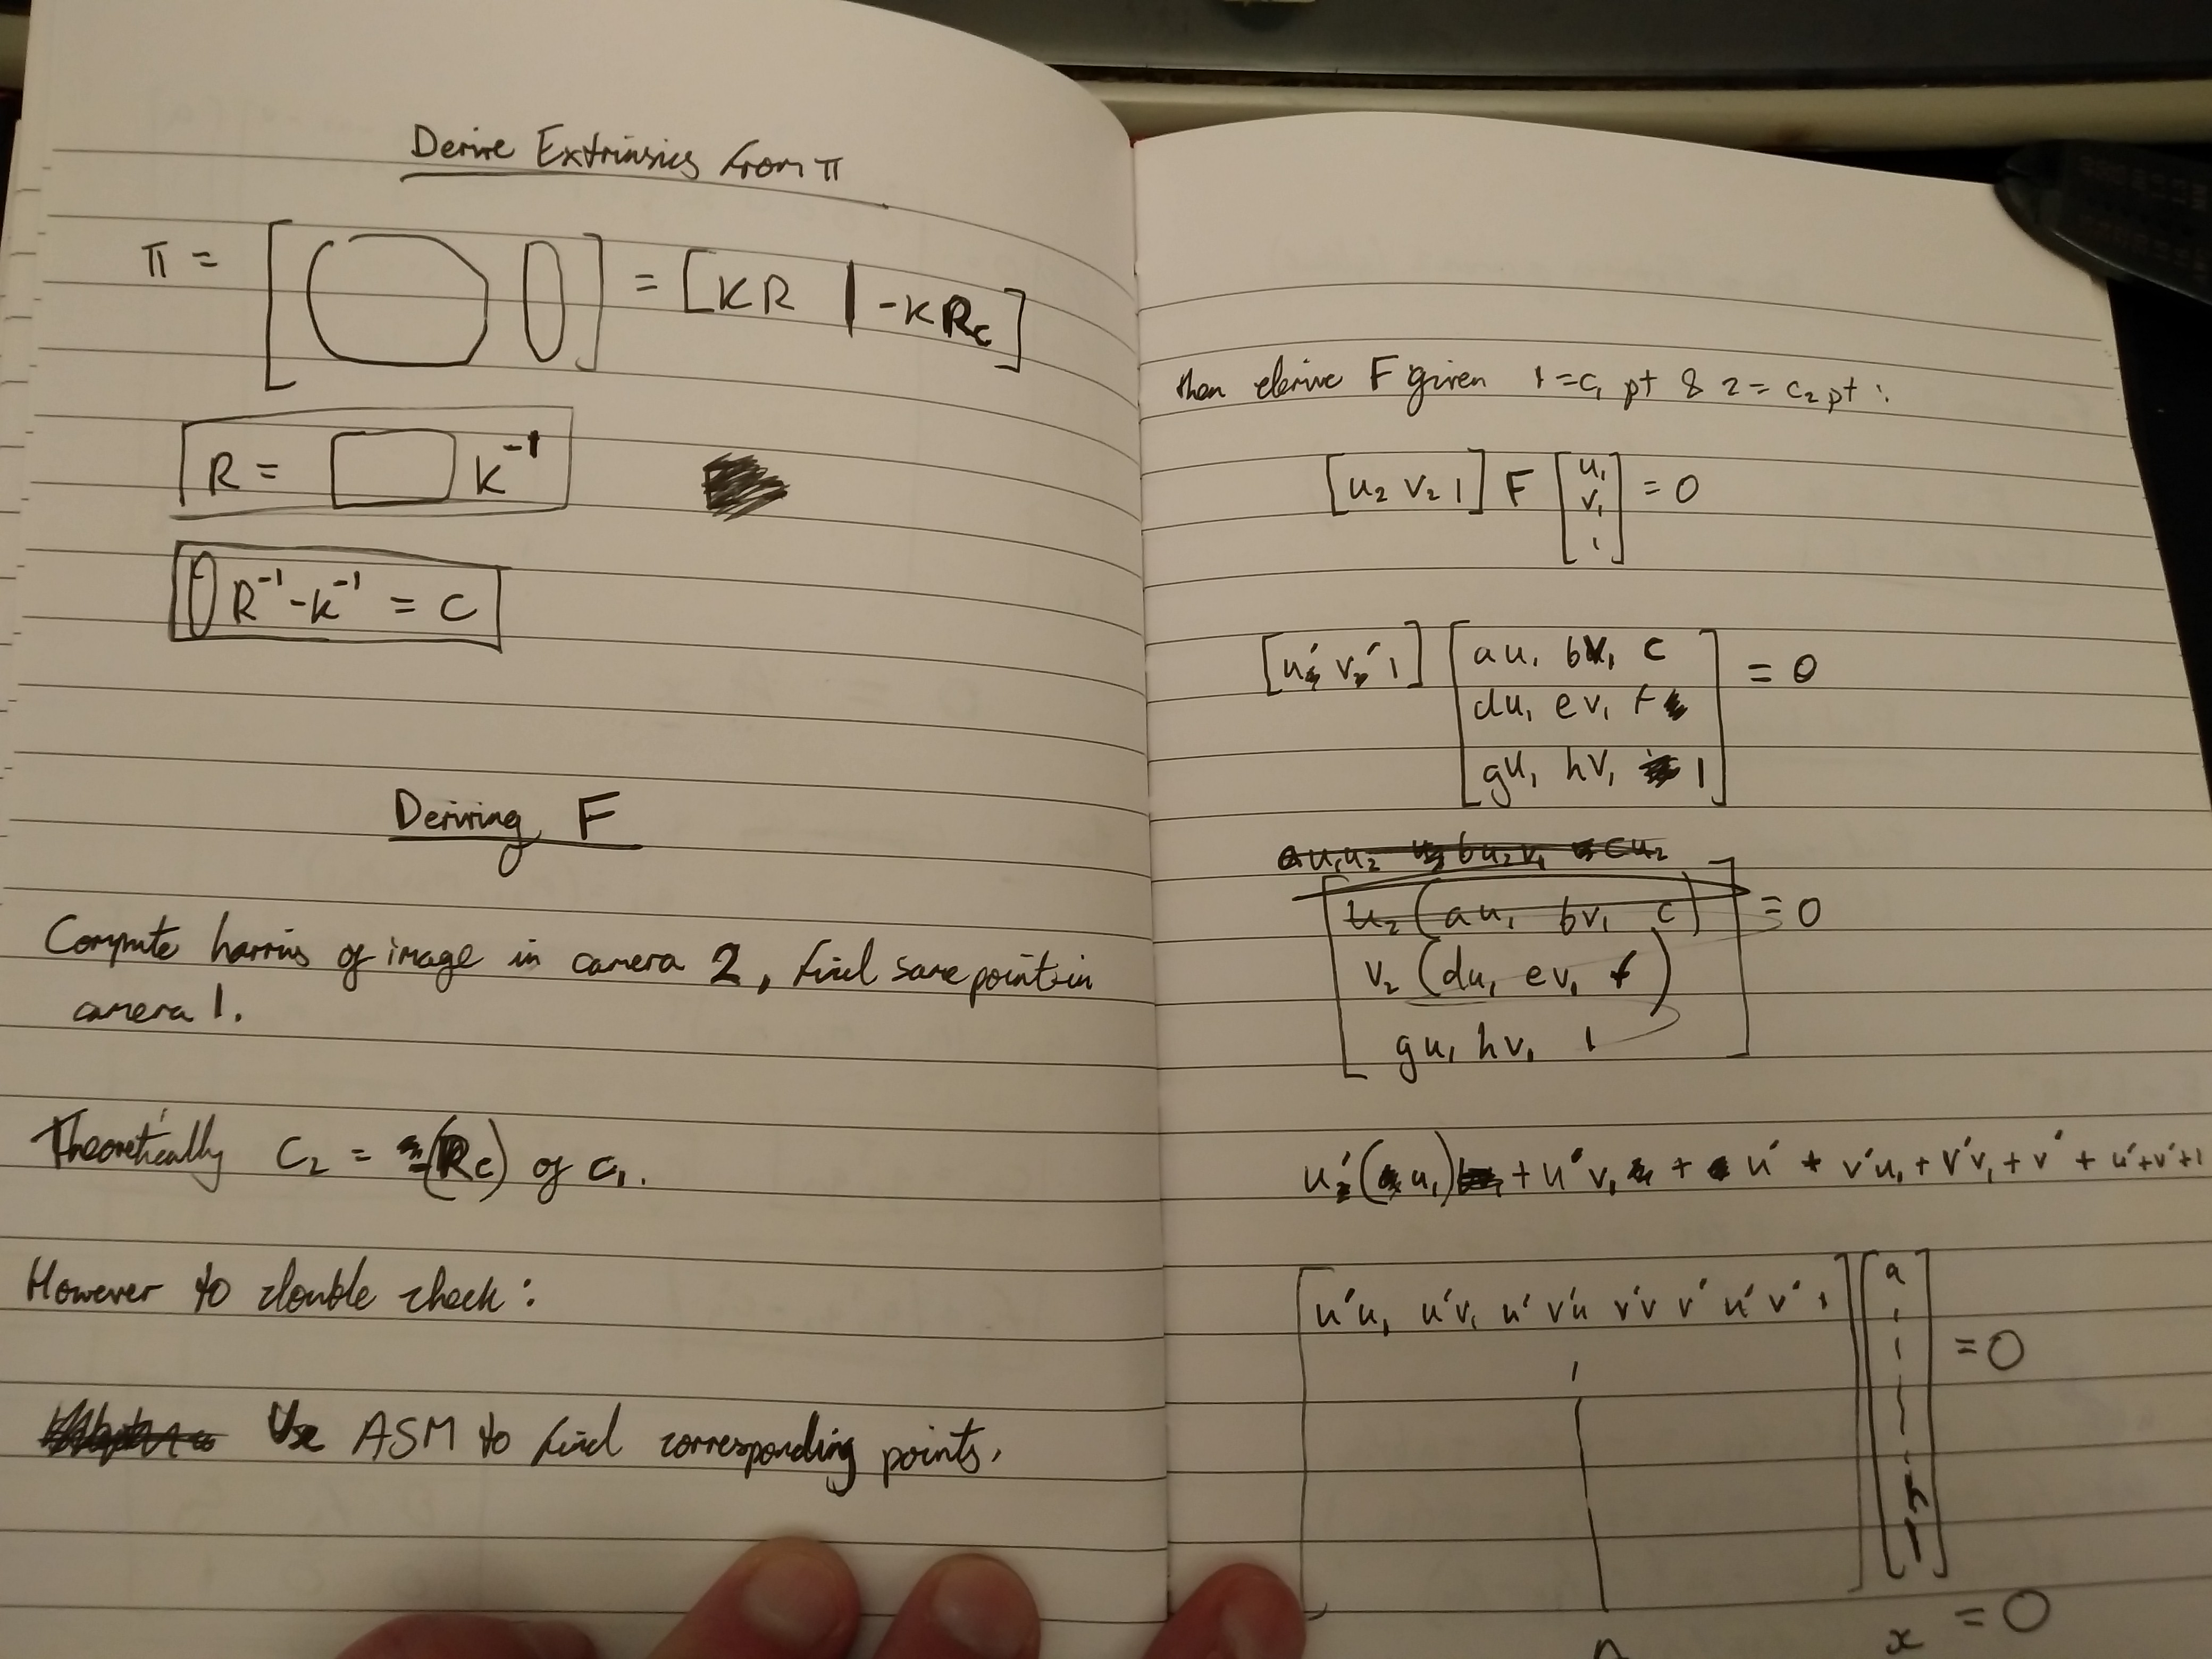 Derive Extrinsics from π
π = [ ] = [KR | -KRc]
R = K⁻¹
R⁻¹ -K⁻¹ = C
Deriving F
Compute harris of image in camera 2, find same point in
camera 1.
Theoretically C₂ = (Rc) of c₁.
However to double check:
Use ASM to find corresponding points.
then derive F given 1 = c₁ pt & 2 = c₂ pt :
[u₂ v₂ 1] F [u₁ v₁ 1] = 0
[u' v' 1] [au₁ bv₁ c
du₁ ev₁ f
gu₁ hv₁ 1] = 0
au₁u₂ bu₂v₁ cu₂
u₂ (au₁ bv₁ c) = 0
v₂ (du₁ ev₁ f)
gu₁ hv₁ 1
u' (u₁) + u'v₁ + u' + v'u₁ + v'v₁ + v' + u'+v'+1
[u'u₁ u'v₁ u' v'u v'v v' u' v' 1] [a = 0
x = 0